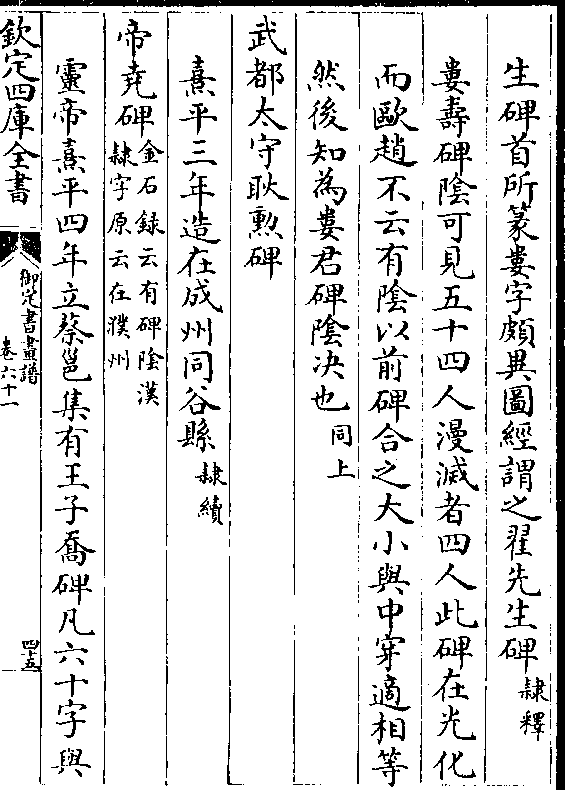 生碑首所篆婁字頗異圖經謂之翟先生碑隸釋
婁壽碑陰可見五十四人漫滅者四人此碑在光化
而歐趙不云有陰以前碑合之大小與中穿適相等
然後知為婁君碑陰决也同上
武都太守耿勲碑
熹平三年造在成州同谷縣隸續
帝堯碑金石録云有碑陰漢
隸字原云在濮州
靈帝熹平四年立蔡邕集有王子喬碑凡六十字與
欽定四庫全書
御定書畫譜
卷六十一
四十五